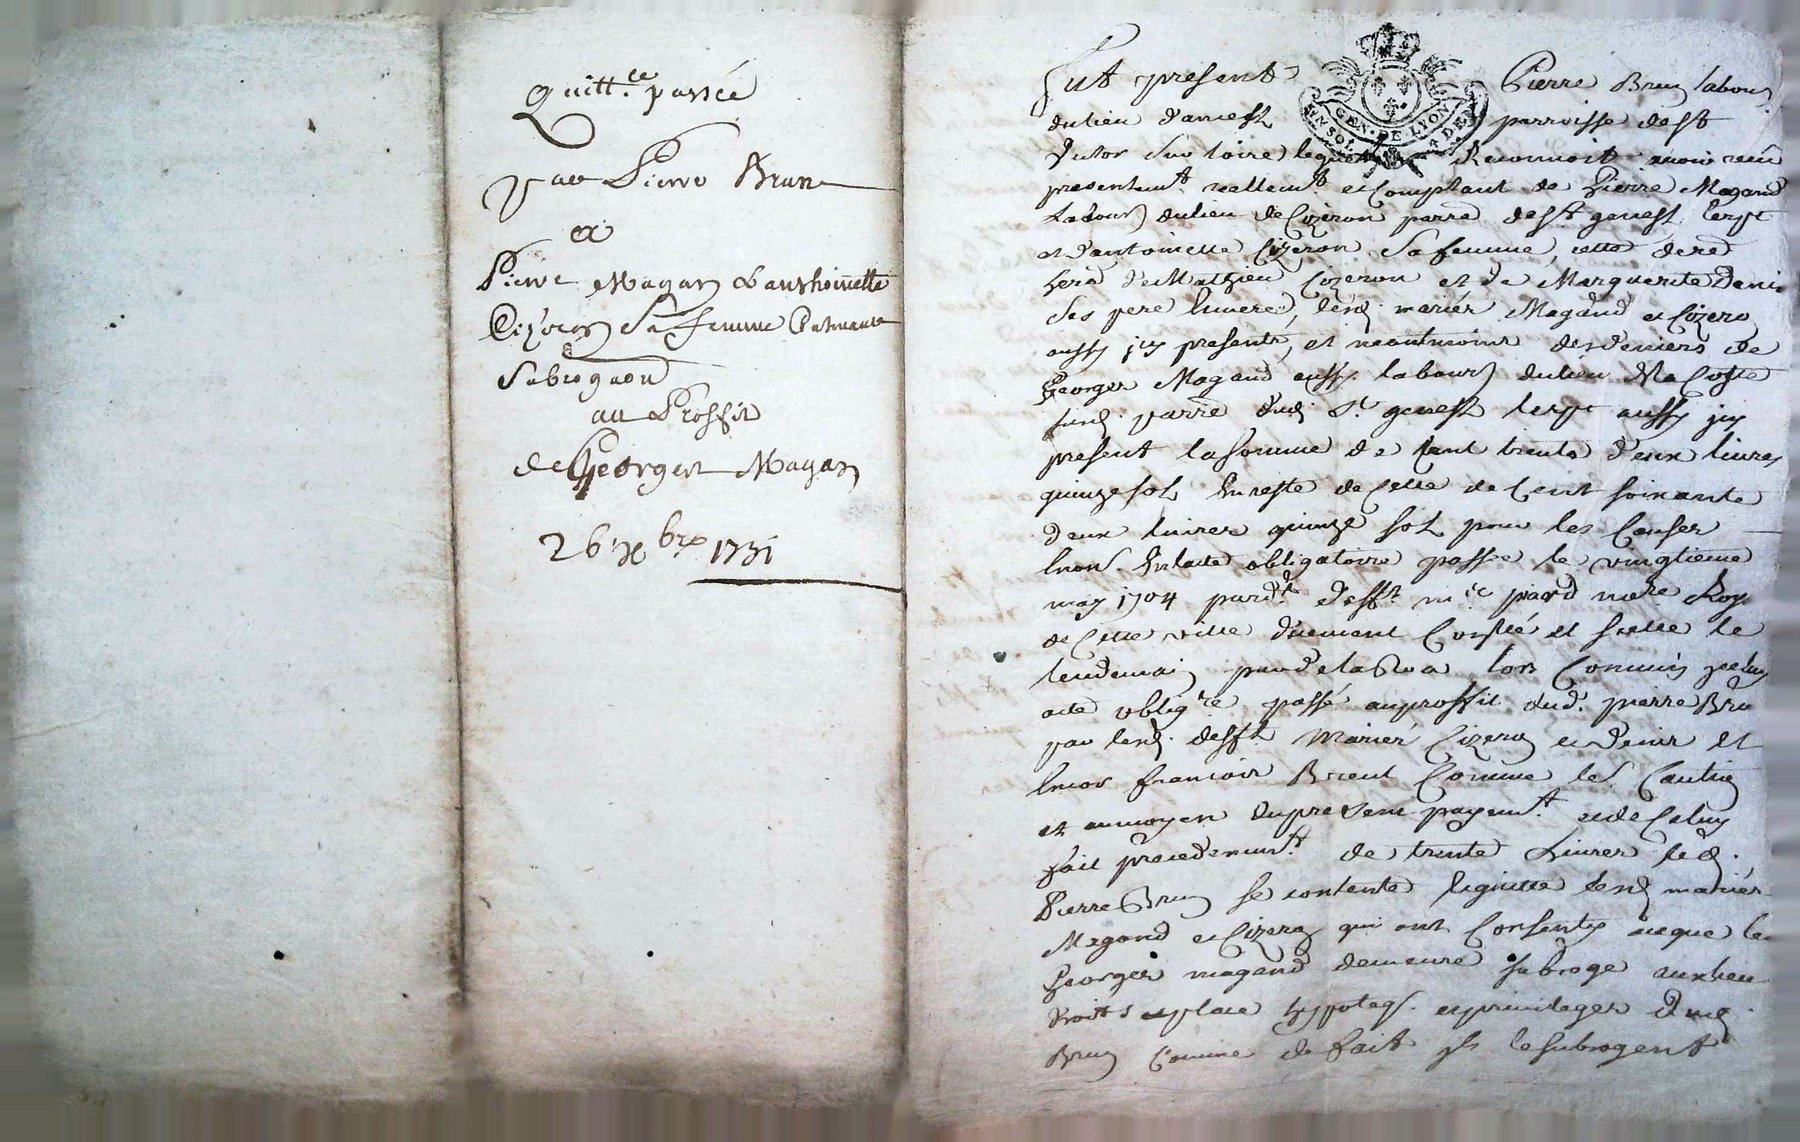 Quitt.ce passée
par Pierre Brun
a
Pierre Magan & anthoinette
Cizeron Sa femme Contenante
Subrogaon
au Proffit
de Georges Magan
26 xbre 1731
Fut present Pierre Brun labour
du lieu parroisse de St
victor Sur loire lequel Reconnoit avoir receu
presentemt reellemt et Comptant de Pierre Magand
labour du lieu de Cizeron parre de St genest lerpt
et d'antoinette Cizeron Sa femme, cette dere
here de Mathieu Cizeron et de Marguerite Denis
Ses pere & mere, lesd mariés Magand et Cizeron
aussy icy presents, et neantmoins des deniers de
Georges Magand aussy labour du lieu de la Coste
susd parre dud St genest lerpt aussy icy
present la somme de Cent trente deux livres
quinze sol, En reste de Celle de Cent soixante
deux livres quinze sol pour les Causes
En lacte obligatoire passé le vingtieme
may 1704 pard.t deff.t me notre Roy
de Cette ville duement Conllé et scellé le
lendemain par lors Commis
acte oblig.re passé au proffit dud. pierre Brun
par lesd. deff.t Mariés Cizeron et Denis et
Encor francois Comme
et aumoyen du present payem.t et de Celuy
fait precedemm.t de trente Livres led.
Pierre Brun se contente & quitte lesd mariés
Magand et Cizeron qui ont Consenty a ce que le
Georges magand demeure subrogé aux lieu
droits et place hypoteq. et privileges dud
Brun Comme de fait ils le subrogent